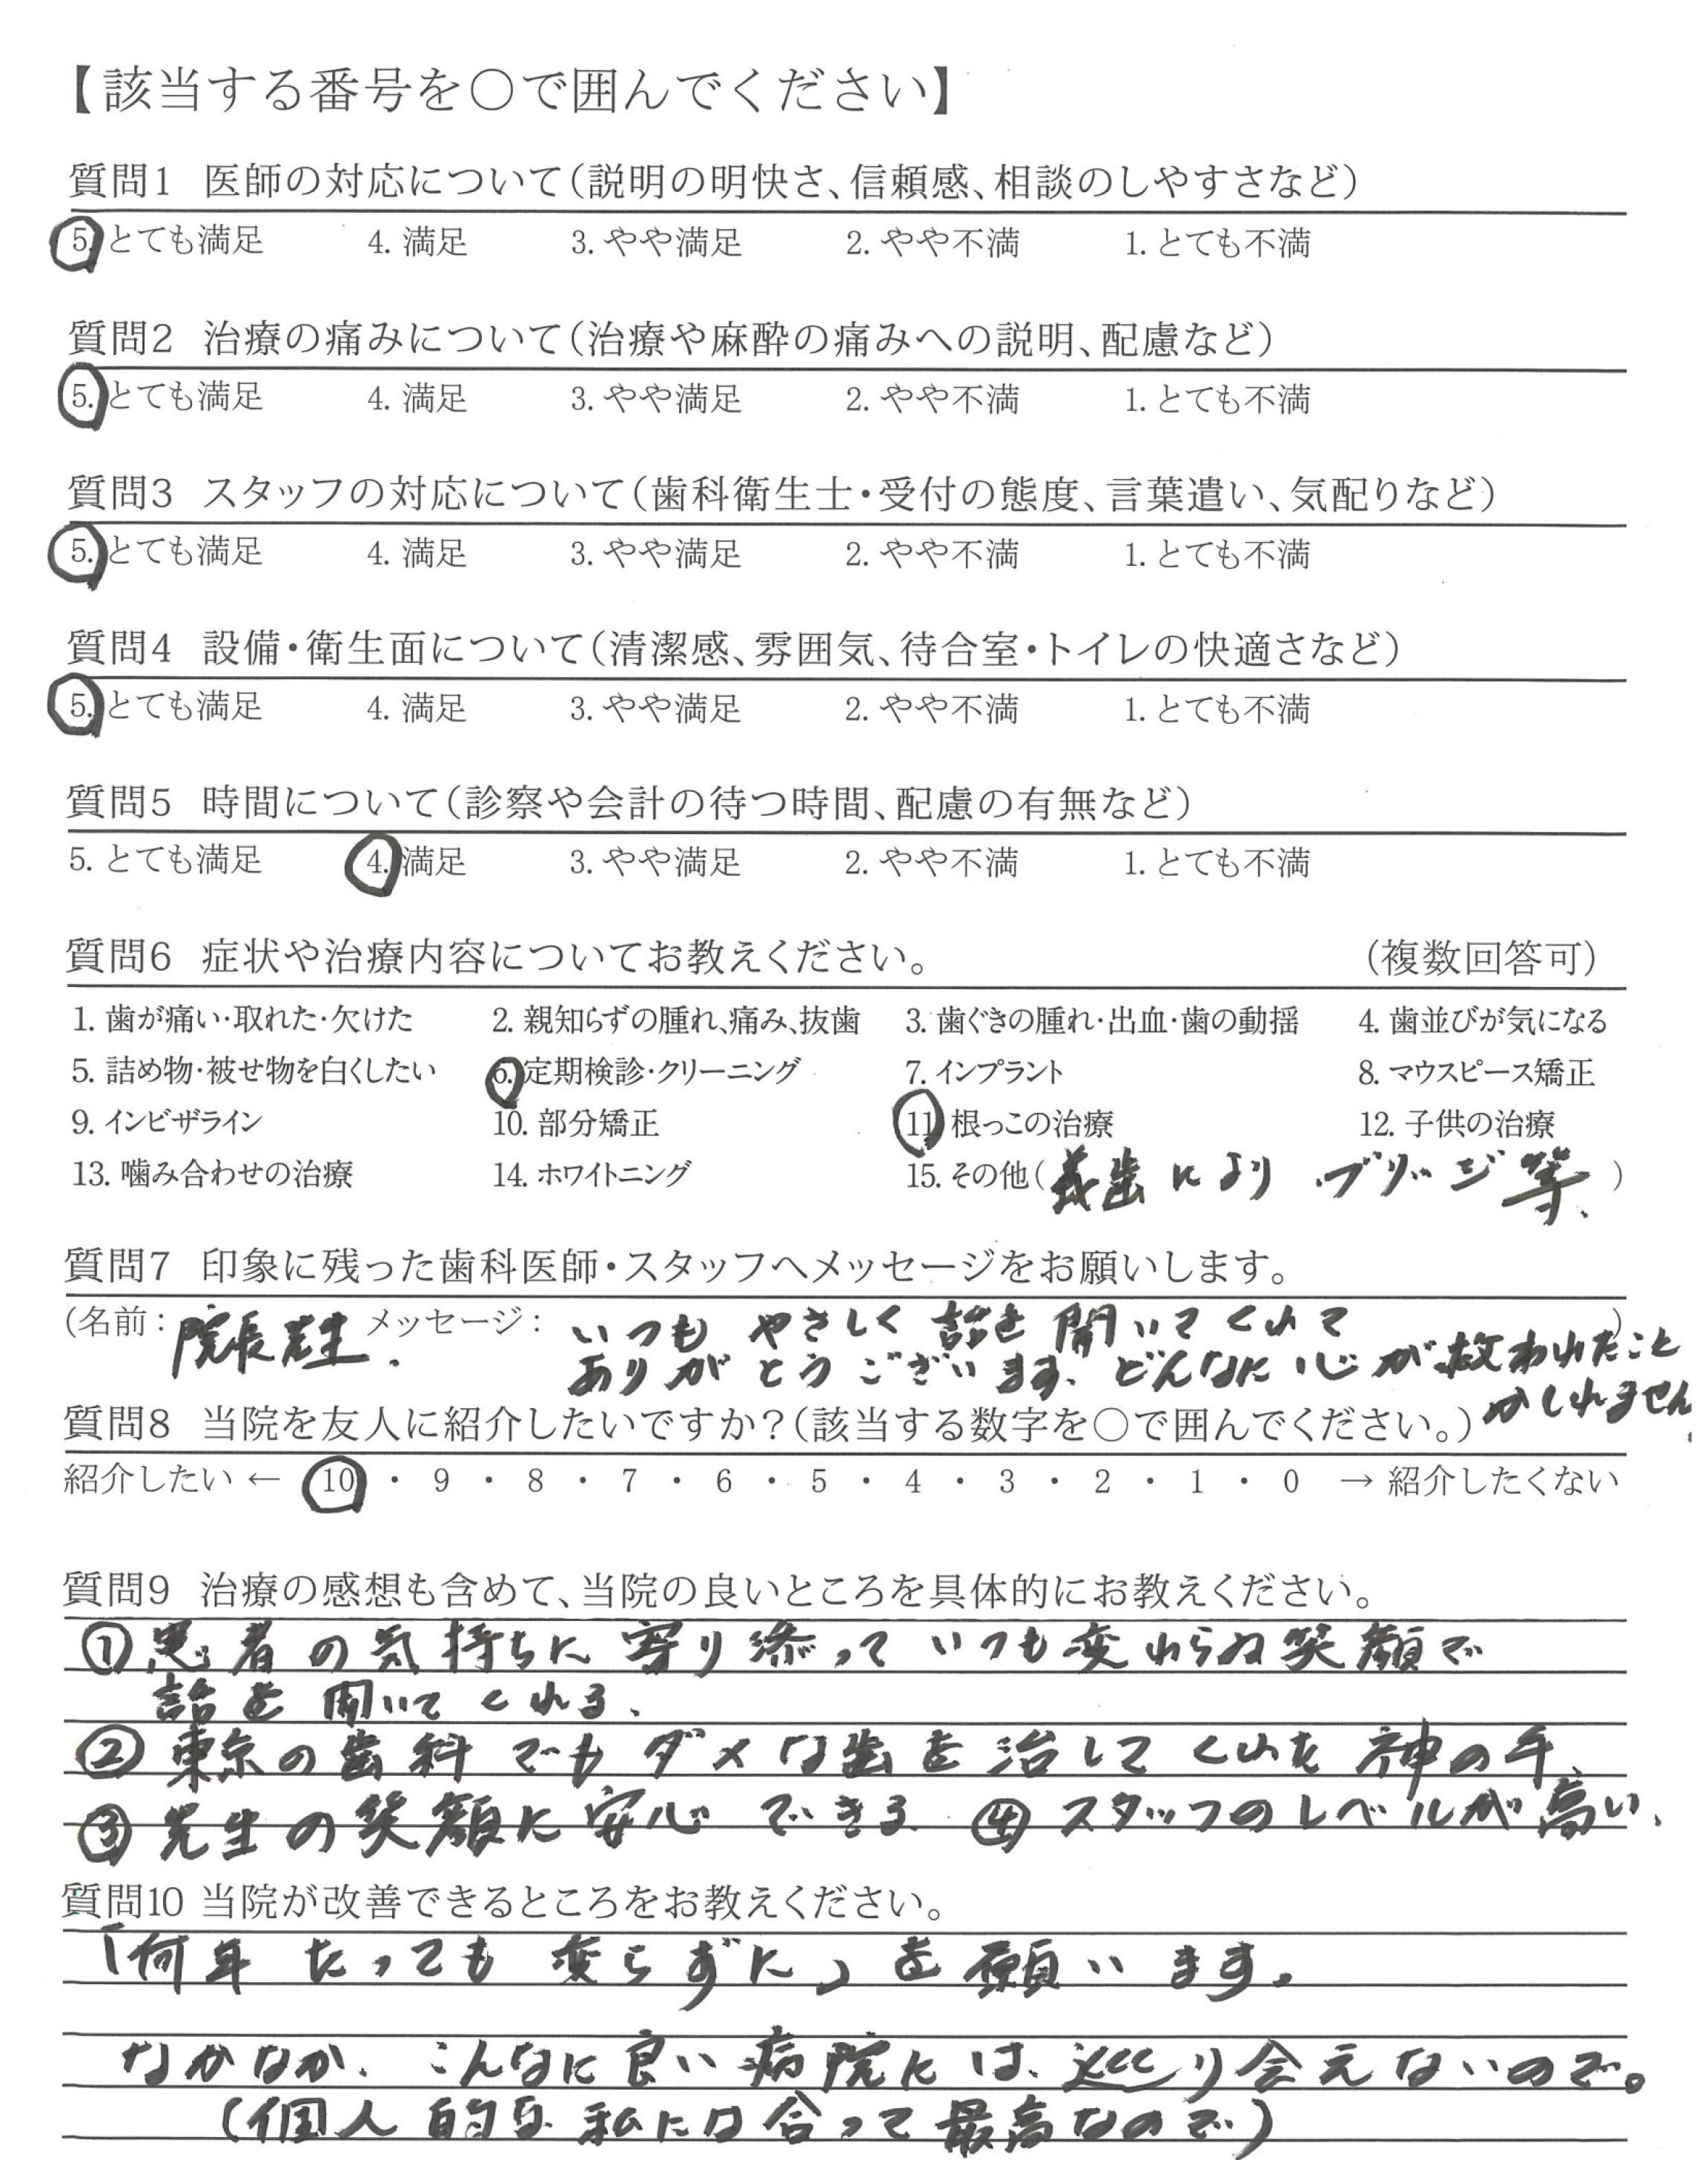 【該当する番号を○で囲んでください】
質問1 医師の対応について(説明の明快さ、信頼感、相談のしやすさなど)
5. とても満足 4. 満足 3. やや満足 2. やや不満 1. とても不満
質問2 治療の痛みについて(治療や麻酔の痛みへの説明、配慮など)
5. とても満足 4. 満足 3. やや満足 2. やや不満 1. とても不満
質問3 スタッフの対応について(歯科衛生士・受付の態度、言葉遣い、気配りなど)
5. とても満足 4. 満足 3. やや満足 2. やや不満 1. とても不満
質問4 設備・衛生面について(清潔感、雰囲気、待合室・トイレの快適さなど)
5. とても満足 4. 満足 3. やや満足 2. やや不満 1. とても不満
質問5 時間について(診察や会計の待つ時間、配慮の有無など)
5. とても満足 4. 満足 3. やや満足 2. やや不満 1. とても不満
質問6 症状や治療内容についてお教えください。 (複数回答可)
1. 歯が痛い・取れた・欠けた 2. 親知らずの腫れ、痛み、抜歯 3. 歯ぐきの腫れ・出血・歯の動揺 4. 歯並びが気になる
5. 詰め物・被せ物を白くしたい 6. 定期検診・クリーニング 7. インプラント 8. マウスピース矯正
9. インビザライン 10. 部分矯正 11. 根っこの治療 12. 子供の治療
13. 噛み合わせの治療 14. ホワイトニング 15. その他(義歯により ブリッジ等、)
質問7 印象に残った歯科医師・スタッフへメッセージをお願いします。
(名前: 院長先生. メッセージ: いつも やさしく 話を 聞いてくれて )
ありがとうございます、どんなに心が救われたこと
かしれません。
質問8 当院を友人に紹介したいですか?(該当する数字を○で囲んでください。)
紹介したい ← 10 ・ 9 ・ 8 ・ 7 ・ 6 ・ 5 ・ 4 ・ 3 ・ 2 ・ 1 ・ 0 → 紹介したくない
質問9 治療の感想も含めて、当院の良いところを具体的にお教えください。
①患者の気持ちに寄り添って いつも変わらぬ笑顔で
話を聞いてくれる、
②東京の歯科でもダメな歯を治してくれた神の手、
③先生の笑顔に安心できる ④スタッフのレベルが高い、
質問10 当院が改善できるところをお教えください。
「何年たっても変らずに」を願います。
なかなか、こんなに良い病院には、巡り会えないので。
(個人的な 私には合って最高なので)